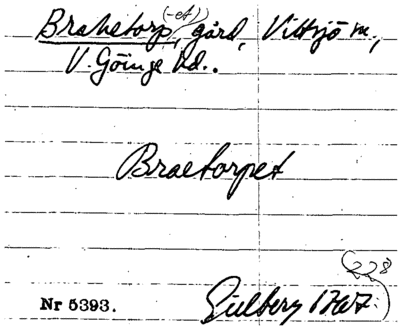 Brahetorp(-et), gård, Vittsjö sn,
V. Göinge hd..
Braetorpet
228
Nr 5393.
Gillberg 1767.